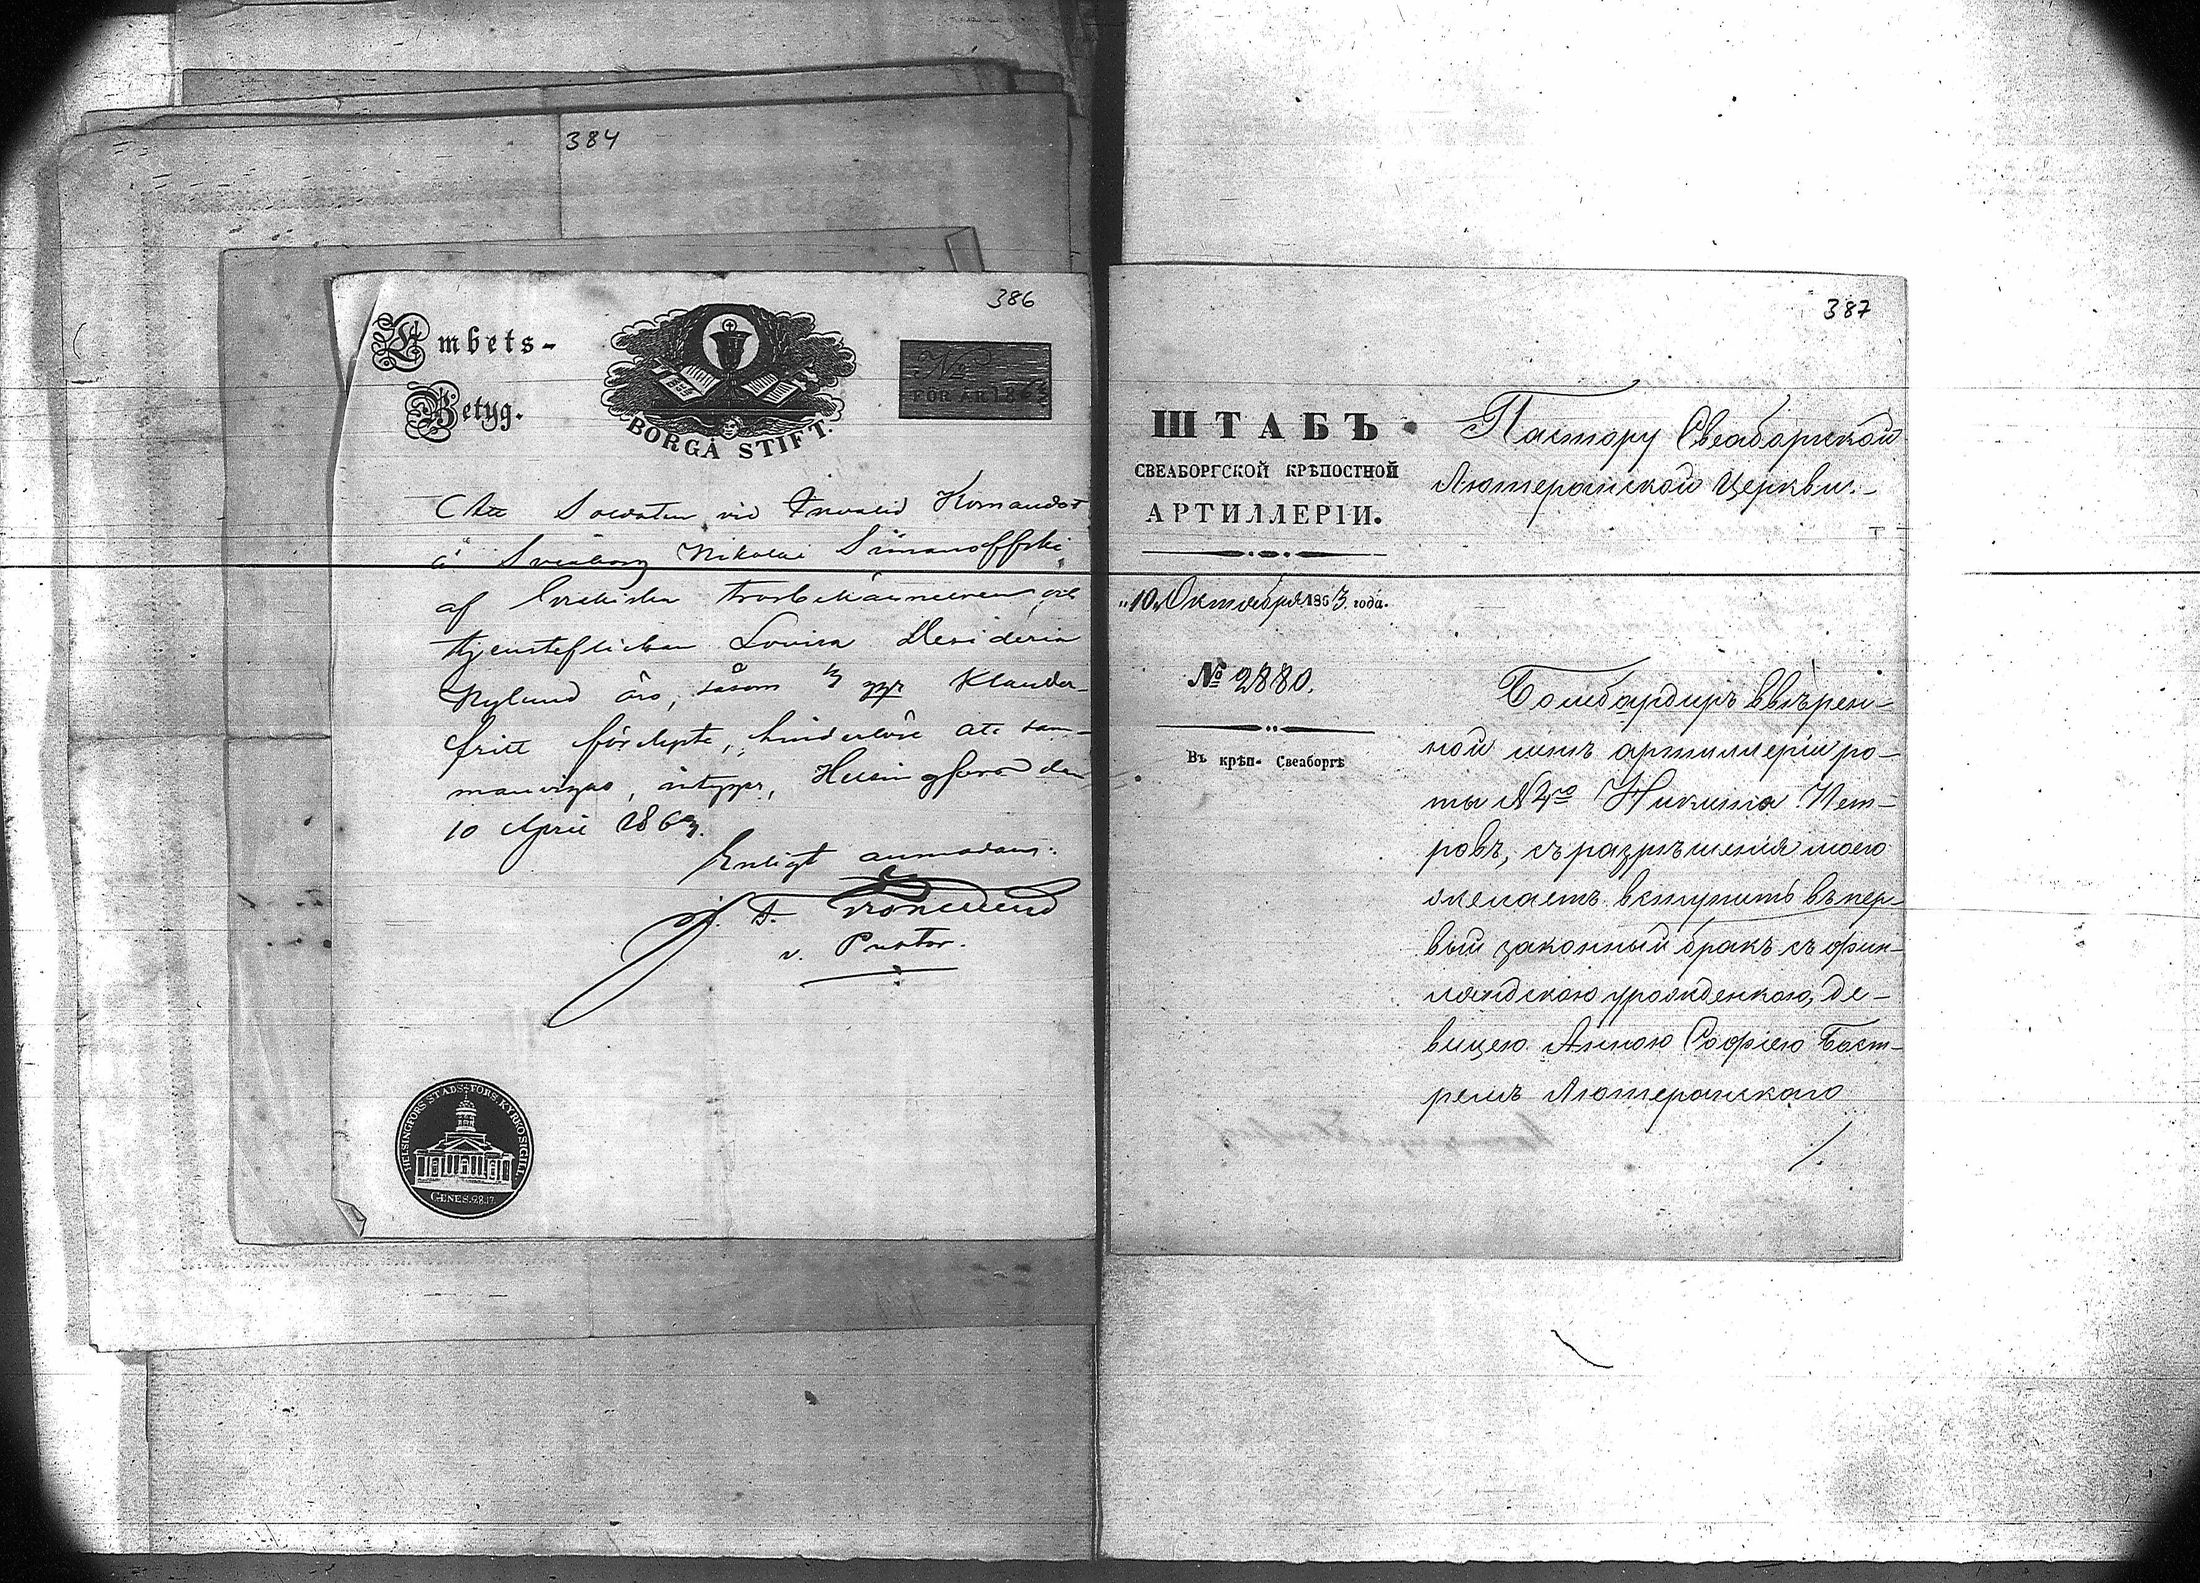 384
386
Embets-
Betyg.
BORGÅ STIFT.
No
FÖR ÅR 1863
Att Soldaten vid Invalid Komandot
å Sveaborg Nikolai Simanoffski
af Grekiska trosbekännelsen och
tjensteflickan Lovisa Desideria
Nylund äro, såsom 3 ggr klander-
fritt förlyste, hinderlöse att sam-
manvigas, intygar, Helsingfors den
10 April 1863.
Enligt anmodan:
v. Pastor.
HELSINGFORS STADS-FÖRS. KYRKO SIGILL.
GENES. 28.17.
387
ШТАБЪ
СВЕАБОРГСКОЙ КРѢПОСТНОЙ
АРТИЛЛЕРІИ.
"10" Октября 1863 года.
№ 2880.
Въ крѣп. Свеаборгѣ
Пастору Свеаборгской
Лютеранской Церкви.
Бомбардиръ ввѣрен-
ной мнѣ артиллеріи ро-
ты № 4го Никита Пет-
ровъ, съ разрѣшенія моего
желаетъ вступить въ пер-
вый законный бракъ съ фин-
ляндскою урожденкою, де-
вицею Анною Софіею Баст-
ремъ Лютеранскаго